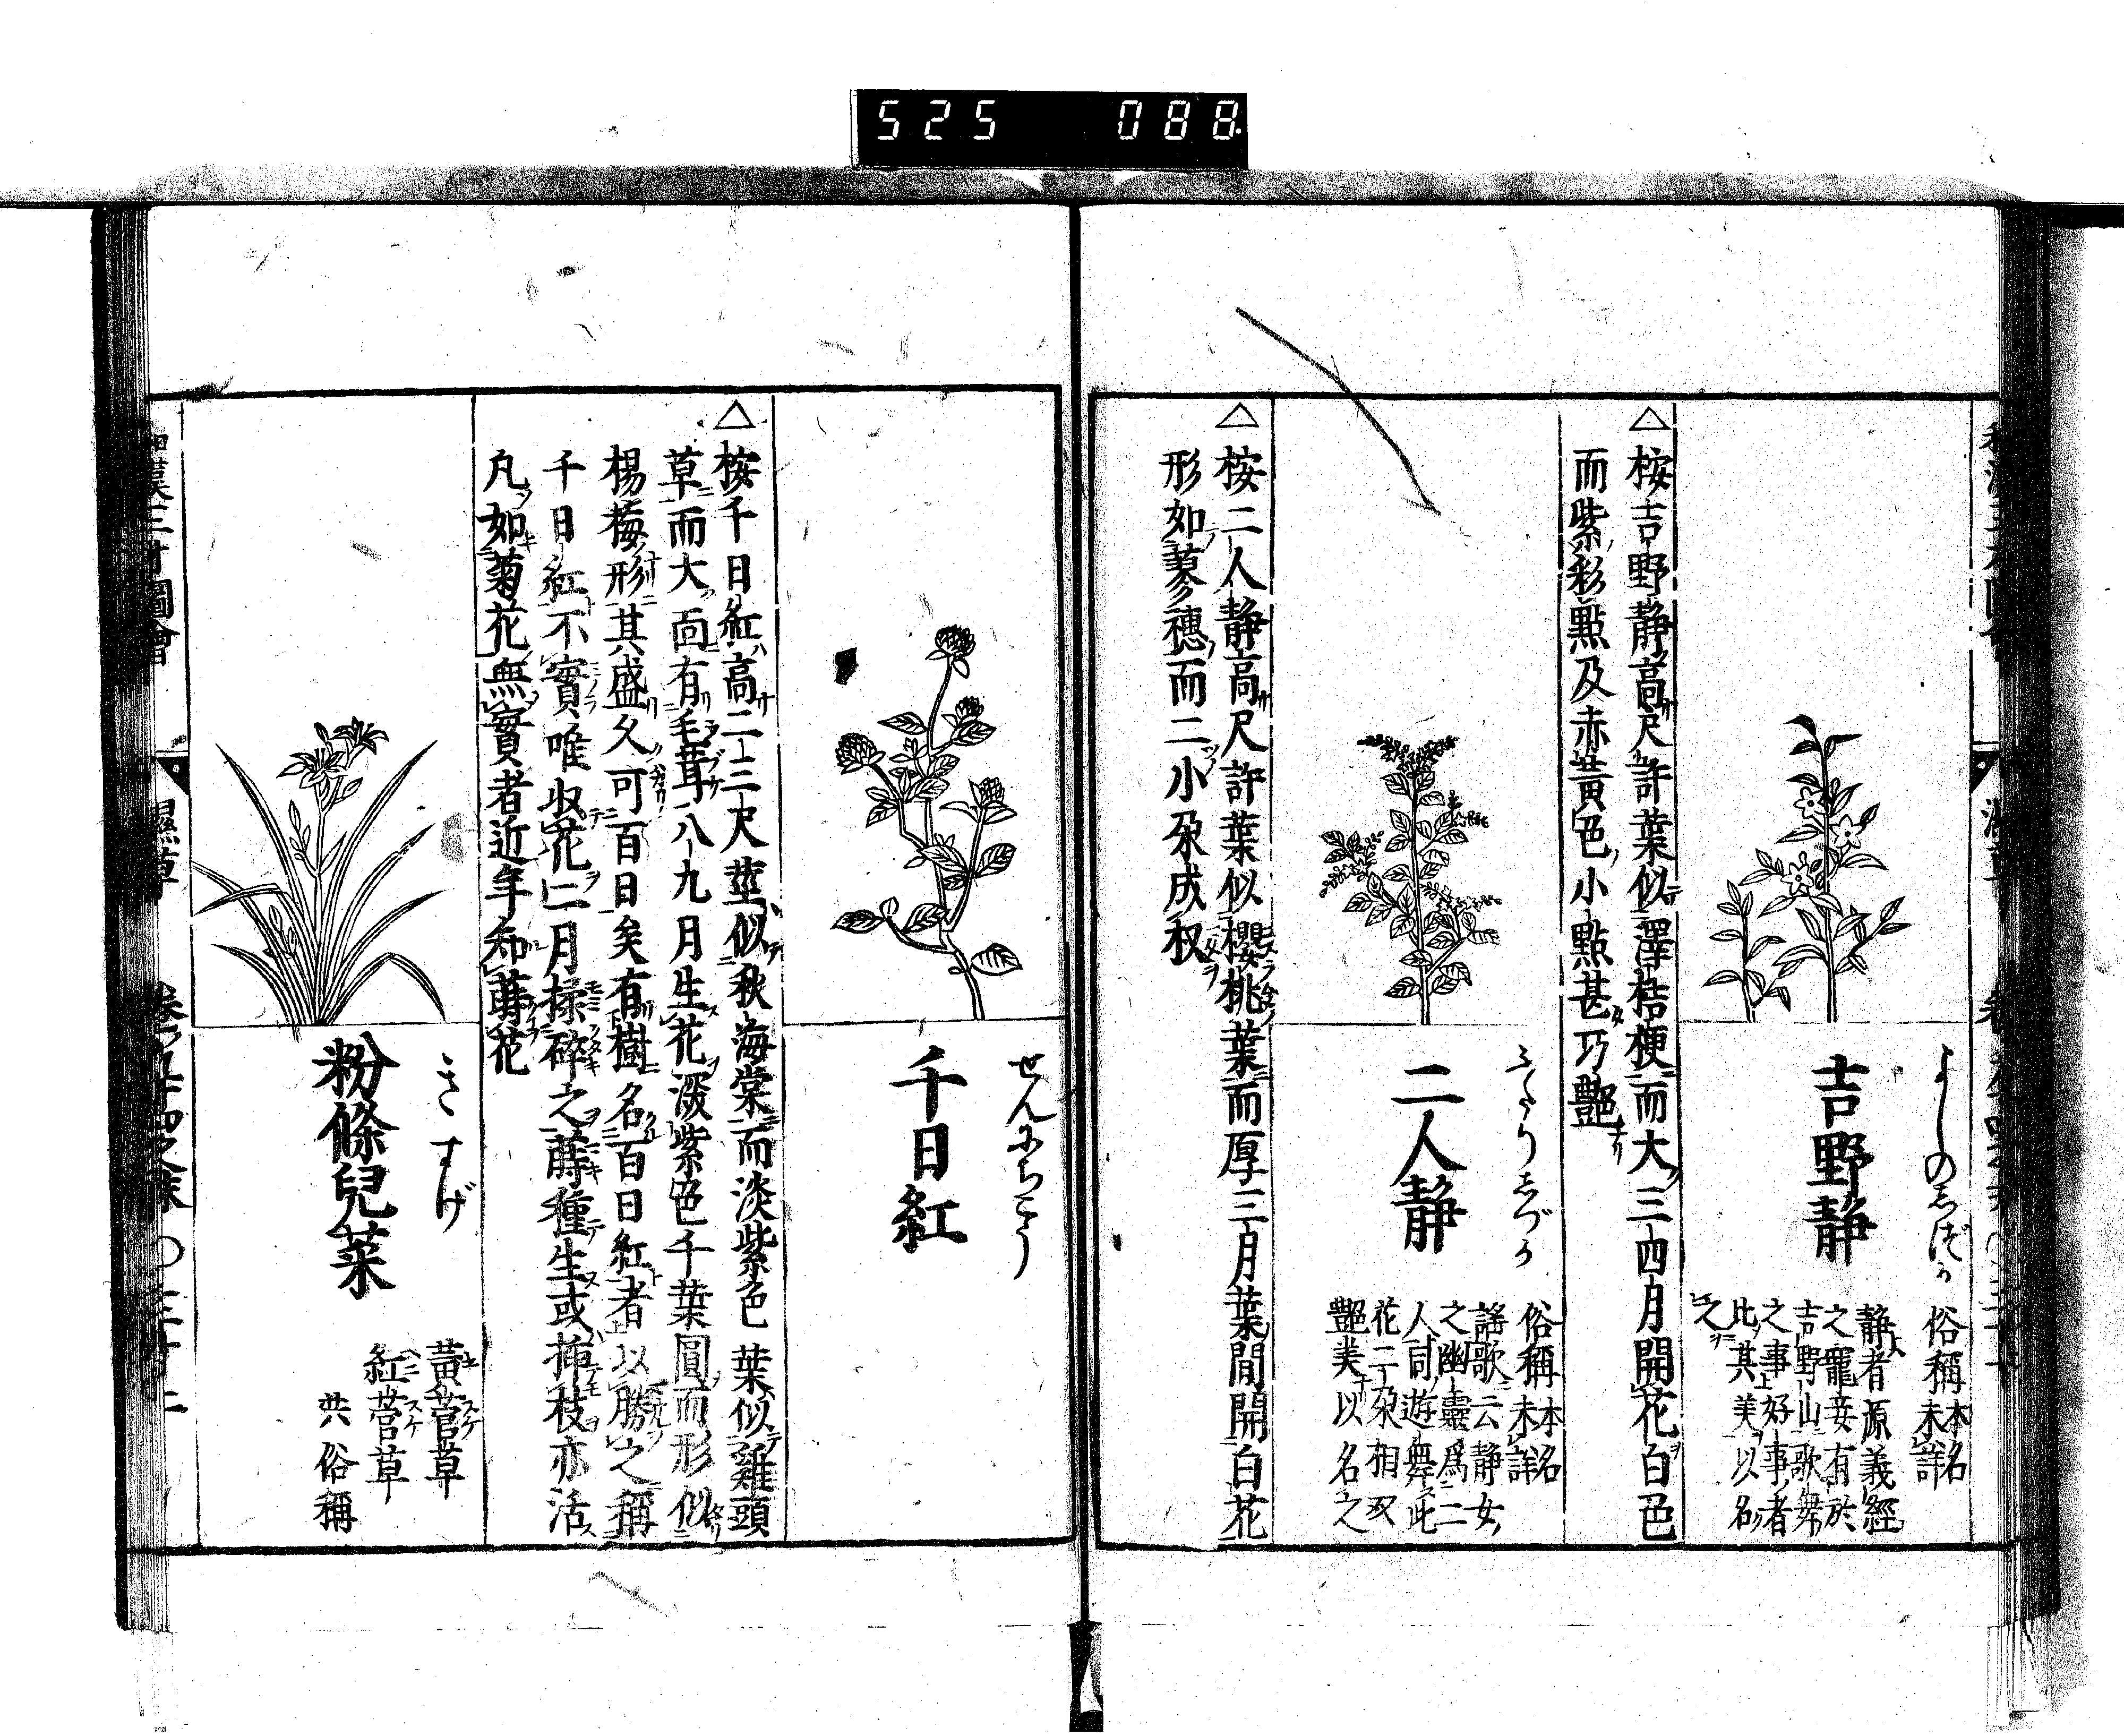 525 088
よしの志づか
吉野静
俗稱本名未詳
静者源義經
之寵妾有於
吉野山歌舞
之事好事者
比其美以名
之
△按吉野静高尺許葉似澤桔梗而大三四月開花白色
而紫彩點及赤黃色小點甚巧艷
ふたり志づか
二人静
俗稱本名未詳
謠歌云静女
之幽靈爲二
人同遊舞此
花二朶相双
艷美以名之
△按二人静高尺許葉似櫻桃葉而厚三月葉間開白花
形如蓼穗而二小朶成杈
せんにちこう
千日紅
△按千日紅高二三尺莖似秋海棠而淡紫色葉似雞頭
草而大面有毛茸八九月生花深紫色千葉圓而形似
楊梅形其盛久可百日矣有樹名百日紅者以勝之稱
千日紅不實唯收花二月揉碎之蒔種生或揷枝亦活
凡如菊花無實者近年知蒔花
きすげ
粉條兒菜
黃菅草
紅菅草
共俗稱
和漢三才圖會 濕草 卷九十四之末